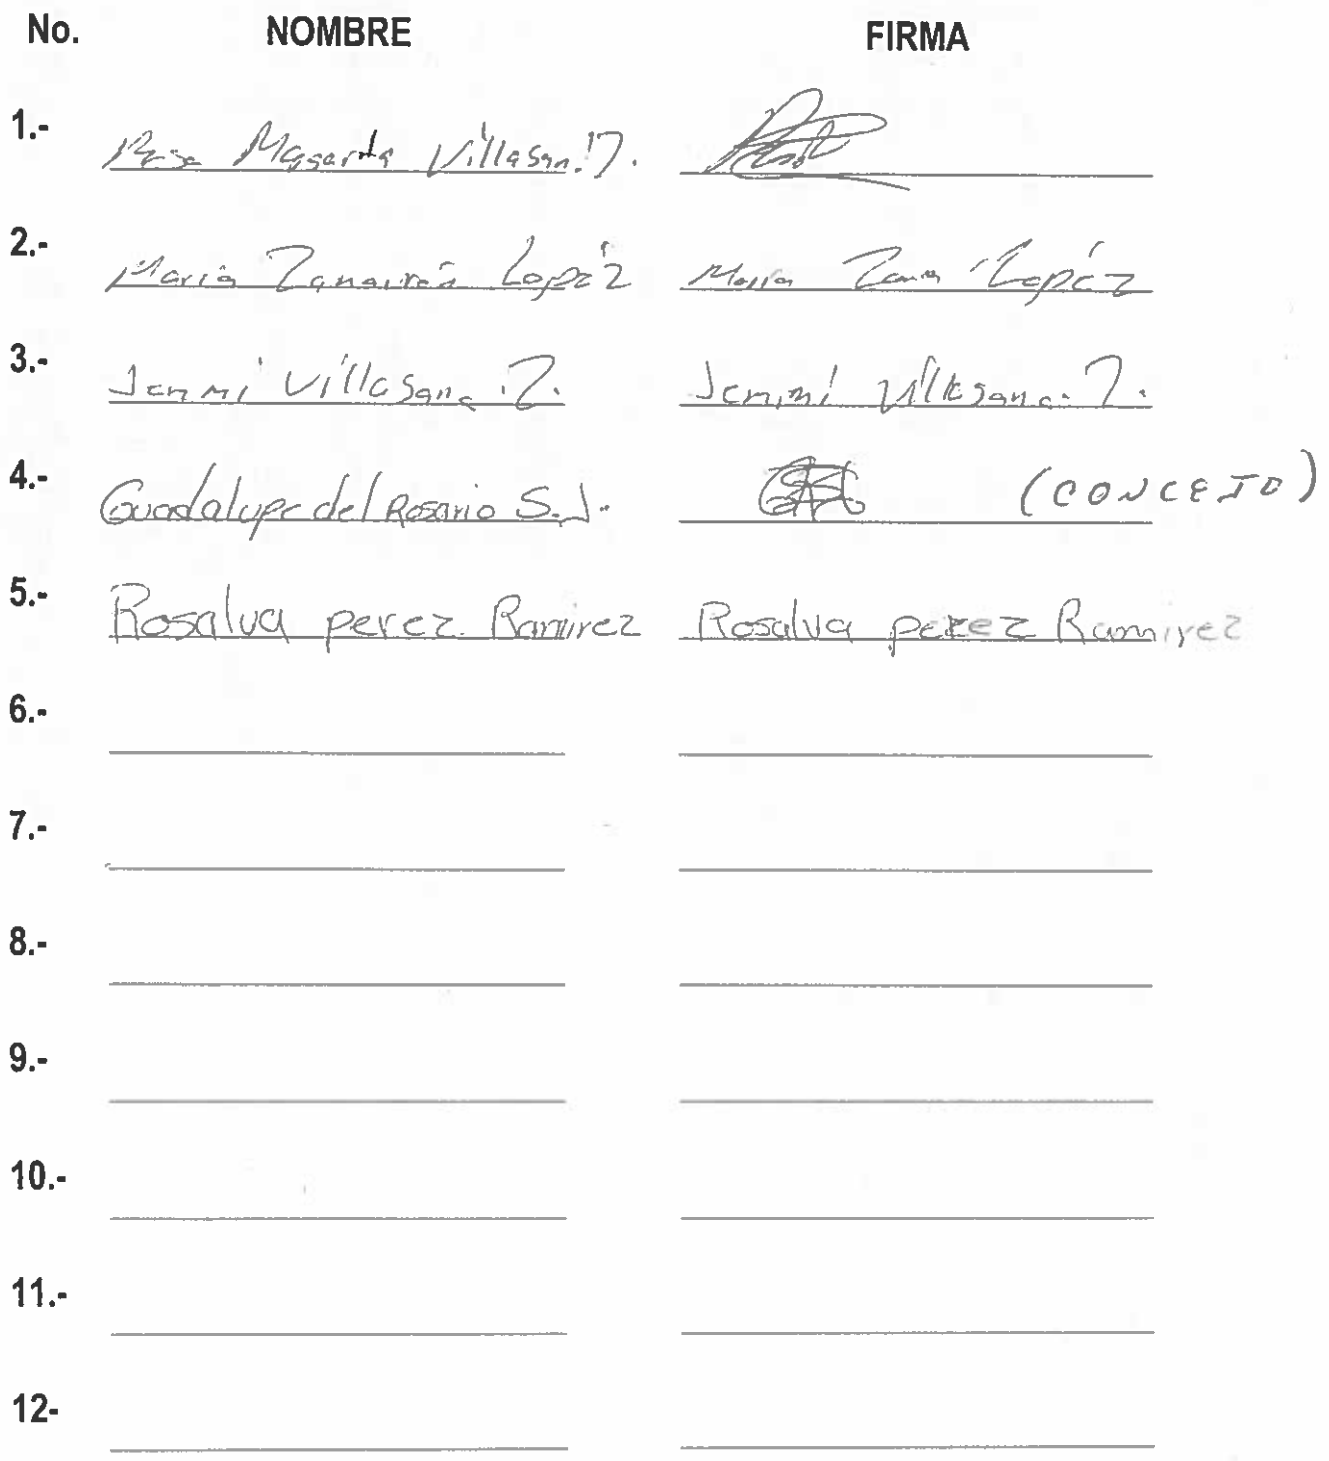 No. NOMBRE FIRMA
1.- Rosa Villasan. Z.
2.- Maria Lopéz Maria Zana Lopéz
3.- Jenmi Villasana Z. Jenmi Villasana. Z.
4.- Guadalupe del Rosario S. J. (CONCEJO)
5.- Rosalva perez Ramirez Rosalva perez Ramirez
6.-
7.-
8.-
9.-
10.-
11.-
12-